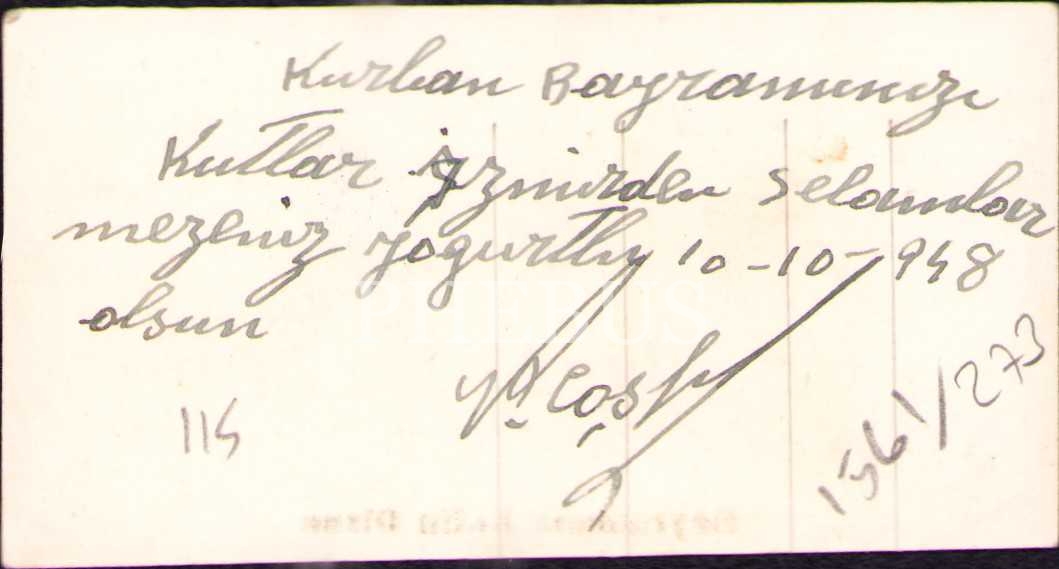 Kurban Bayramınızı
Kutlar İzmirden Selamlar
mezeniz yogurtlu 10-10-948
olsun
115
1561/273